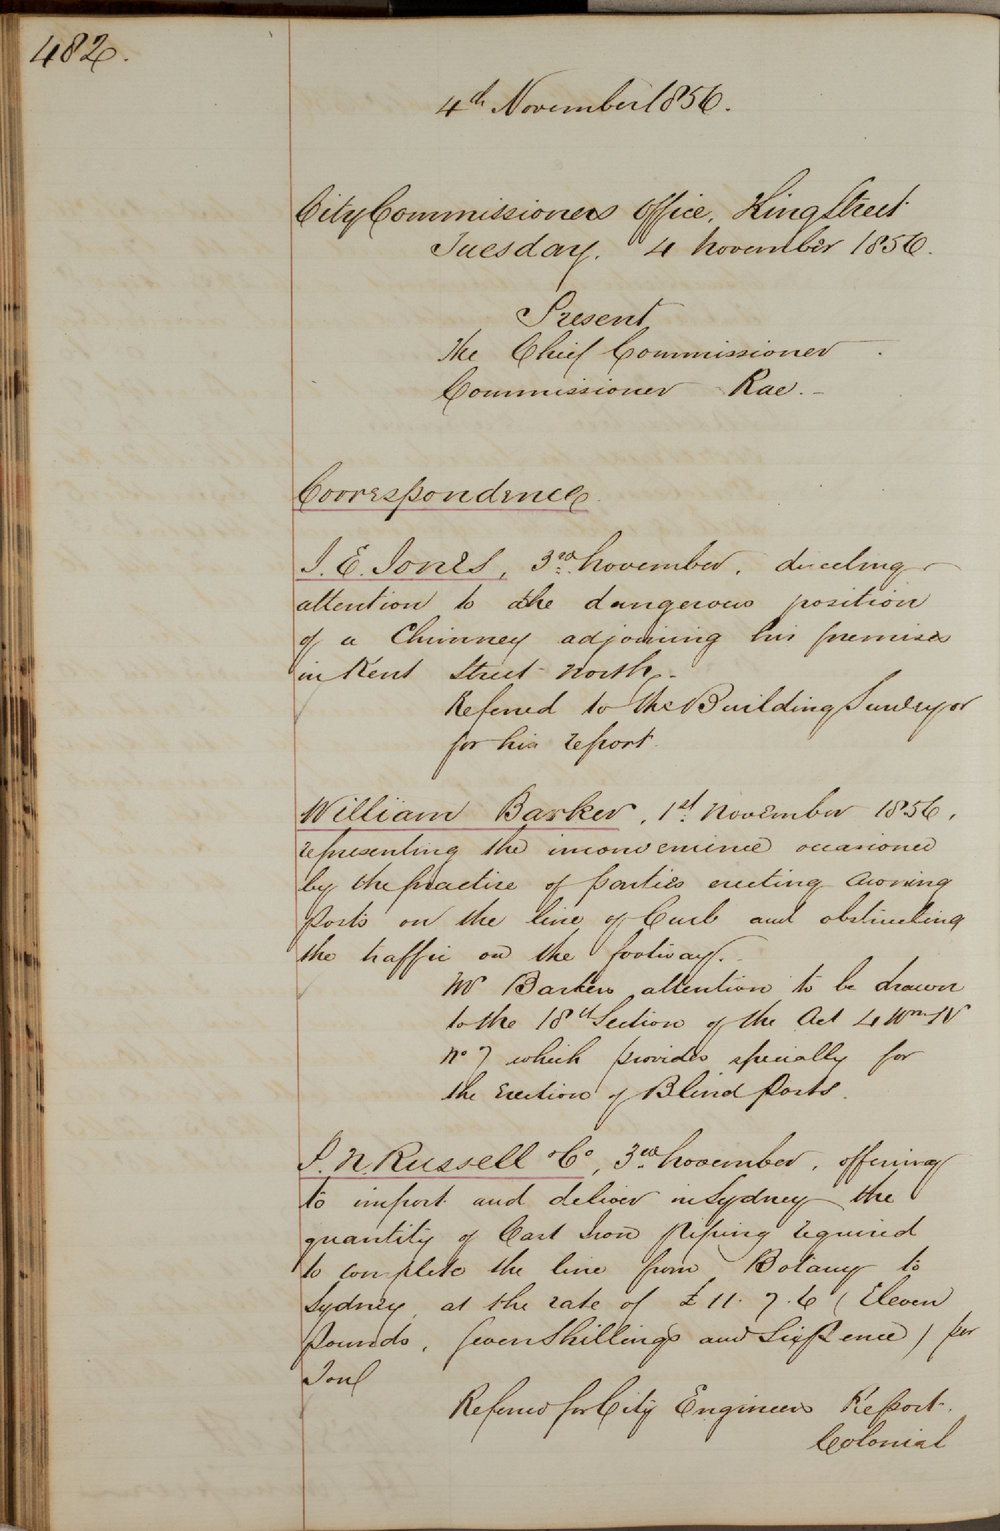 482.
4th November 1856.
City Commissioners Office, King Street
Tuesday, 4 November 1856.
Present
The Chief Commissioner.
Commissioner Rae. -
Correspondence
J. E. Jones, 3rd November, directing
attention to the dangerous position
of a Chimney adjoining his premises
in Kent Street North. -
Referred to the Building Surveyor
for his report.
William Barker, 1st November 1856,
representing the inconvenience occasioned
by the practise of parties erecting awning
posts on the line of Curb and obstructing
the traffic on the footway. -
Mr Barkers attention to be drawn
to the 18th Section of the Act 4 Wm IV
No 7 which provides specially for
the Erection of Blind Posts.
P. N. Russell & Co, 3rd November, offering
to import and deliver in Sydney the
quantity of Cast Iron Piping required
to complete the line from Botany to
Sydney at the rate of £11. 7. 6 (Eleven
pounds, Seven Shillings and Six Pence) per
Ton
Referred for City Engineers Report.
Colonial